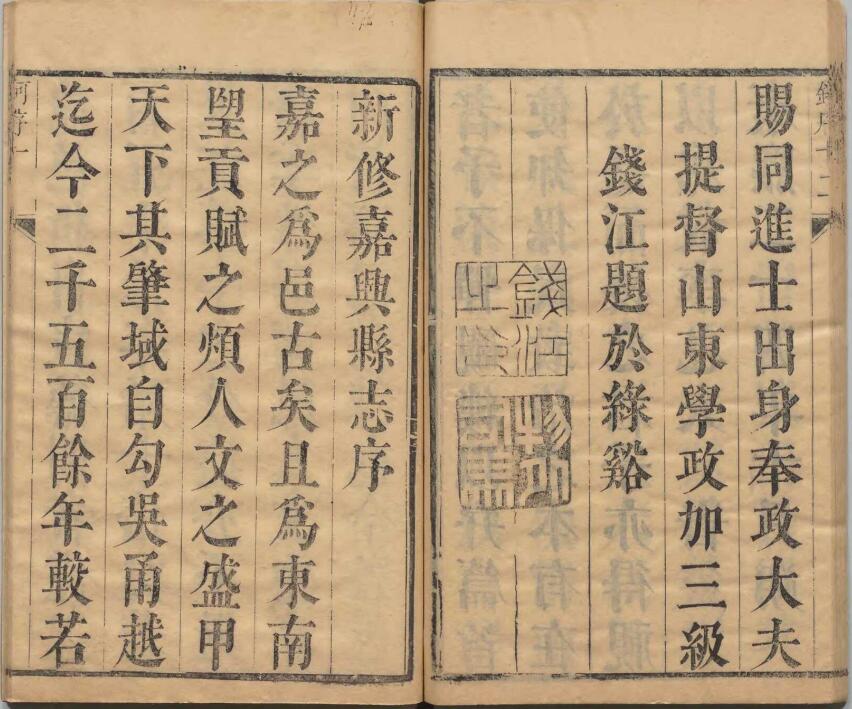 賜同進士出身奉政大夫
提督山東學政加三級
錢江題於綠谿
錢江之印
新修嘉興縣志序
嘉之為邑古矣且為東南
望貢賦之煩人文之盛甲
天下其肇域自勾吳甬越
迄今二千五百餘年較若
何序一